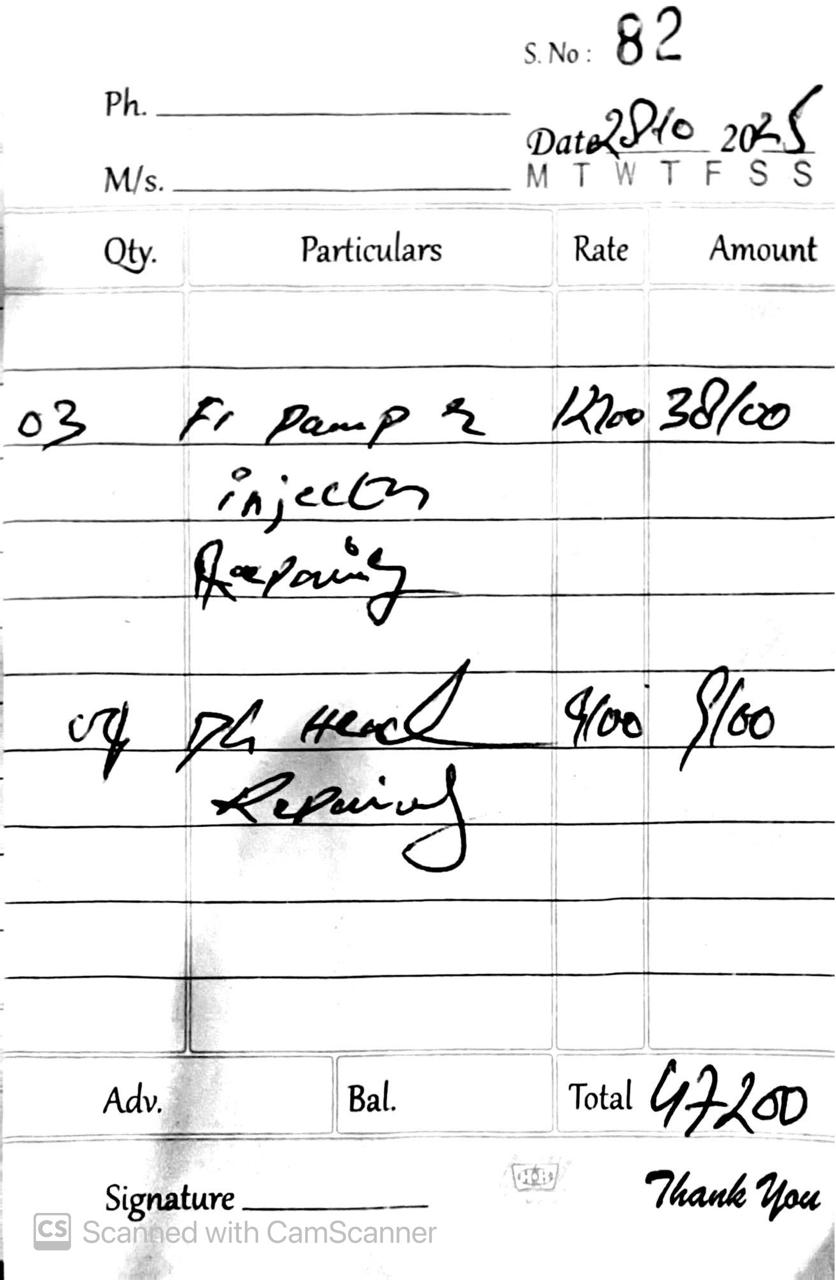 S. No : 82
Ph.
Date 28/10 2025
M/s.
M T W T F S S
Qty. Particulars Rate Amount
03 Pamp & 12700 38100
injector
Repairing
Head 9100 9100
Repairing
Adv. Bal. Total 47200
Signature
HOB
Thank You
CS Scanned with CamScanner